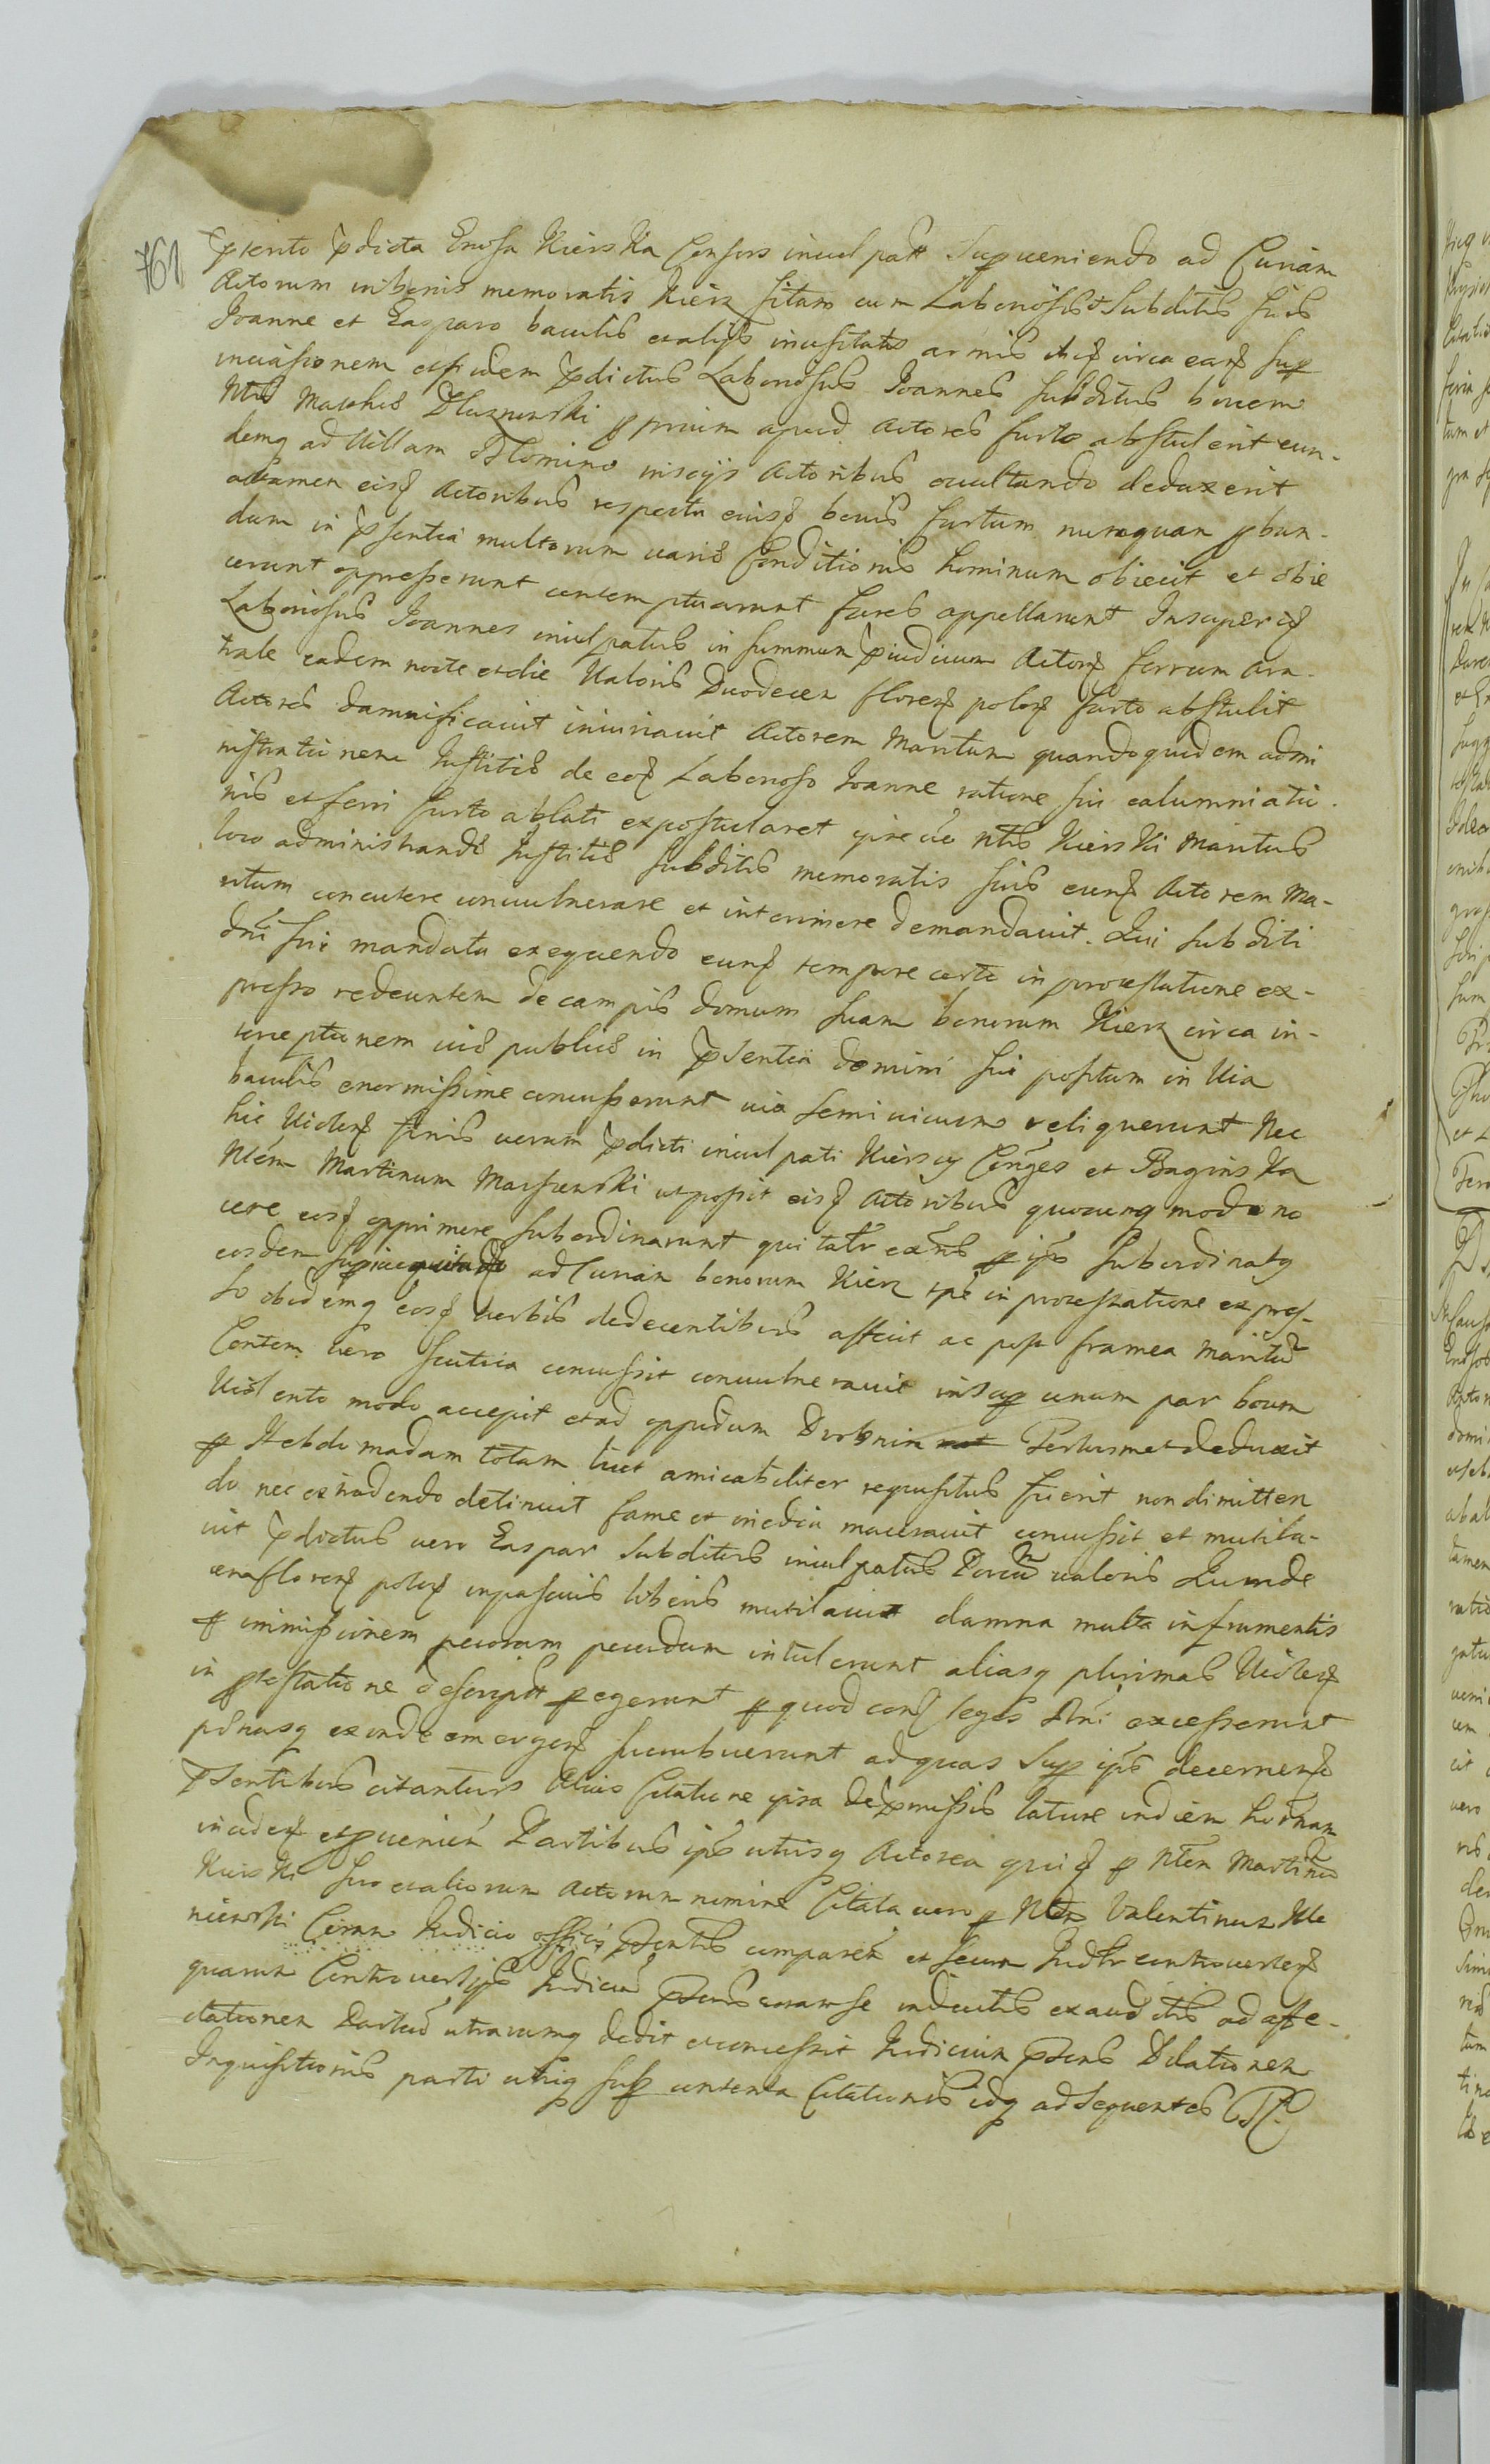 761
praedicta Gnosa Kierska Consors inculpati Superueniendo ad Curiam
Actorum in bonis memoratis Kierz sitam cum Laboriosis Subditis suis
Joanne et Casparo baculis et alijs inusitatis armis circa eam
inuasionem et fidem praedictus Laboriosus Joannes subditus bouem
Nlis Mathis Dluzniewski proprium apud Actores furto abstulerit eun-
demq ad Villam Plomino inscijs Actoribus ocultando deduxerit
attamen eisd Actoribus respectu eiusd bouis furtum nunquam proban-
dum in praesentia multorum varis Conditionis hominum obiecit et obie
cerunt oppresserunt contemptuarunt fures appellarunt Insuper id
Laboriosus Joannes inculpatus in summum praeiudicium Actorum ferrum ara-
trale eadem nocte et die Valoris Duodecem florenorum polon furto abstulit
Actores damnificauit iniuriauit Actorem Maritum quandoquidem admi
nistrationem Justitis de eod Laborioso Joanne ratione sui calumniatio
nis et ferri furto ablati expostularet Nlis Kierski Maritus
loco administrands Justitis subditis memoratis suis eund Actorem Ma-
ritum concutere conuulnerare et interimere demandauit. Qui subditi
dni sui mandata exequendo eund tempore certo in protestatione ex-
presso redeuntem de campis domum suam bonorum Kierz circa in-
terceptionem uis publics in praesentia domini sui positum in Via
baculis enormissime concusserunt uix semiuiuum reliquerunt Nec
hic Violens finis uerum praedicti inculpati Kierscy Conges et Baginska
Nlem Martinum Marszewski ut possit eisd Actoribus quocunq modo no
cere eosd opprimere subordinarunt qui taliter exns p ipos subordinatq
eosdem ad Curiam bonorum Kierz tpe in protestatione expres-
so ibidemq eosd verbis dedecentibus affecit ac post framea Maritum
Contem vero scutica concussit conuulnerauit insup unum par boum
Violento modo accepit et ad oppidum Drobnin Pertusmet deduxit
p Hebdomadam totam licet amicabiliter requisitus fuerit non dimitten
do nec extradendo detinuit fame et inedia macerauit concussit et mutila-
uit praedictus uero Caspar subditus inculpatus Porcum ualoris Quinde
cem florenorum polon in pascuis liberis mutilauit damna multa in frumentis
p immissionem pecorum pecudum intulerunt aliasq plurimas Violens
in protestatione descript peregerunt p quod cons leges Rni excesserunt
psnasq exinde emergens sucubuerunt ad quas sup ipos decernens
praesentibus citantur Alias Citatione ipsa de praemissis latius indiem hodnam
incidens et prouenien Partibus ipis utrisq Actorea quid p Nlem Martinum
Kierski suo et aliorum Actorum nomine Citata uero p Nlem Valentinum
Coram Judicio officij praesentis comparen et secum Judtr controuertens
quarum Controuersijs Judicium praesens coram se inductis exauditis ad affe-
ctationem Partium utrarumq dedit et concessit Judicium praesens Dilationem
Inquisitionis parti utriq sup contenta Citationis idq ad sequentes